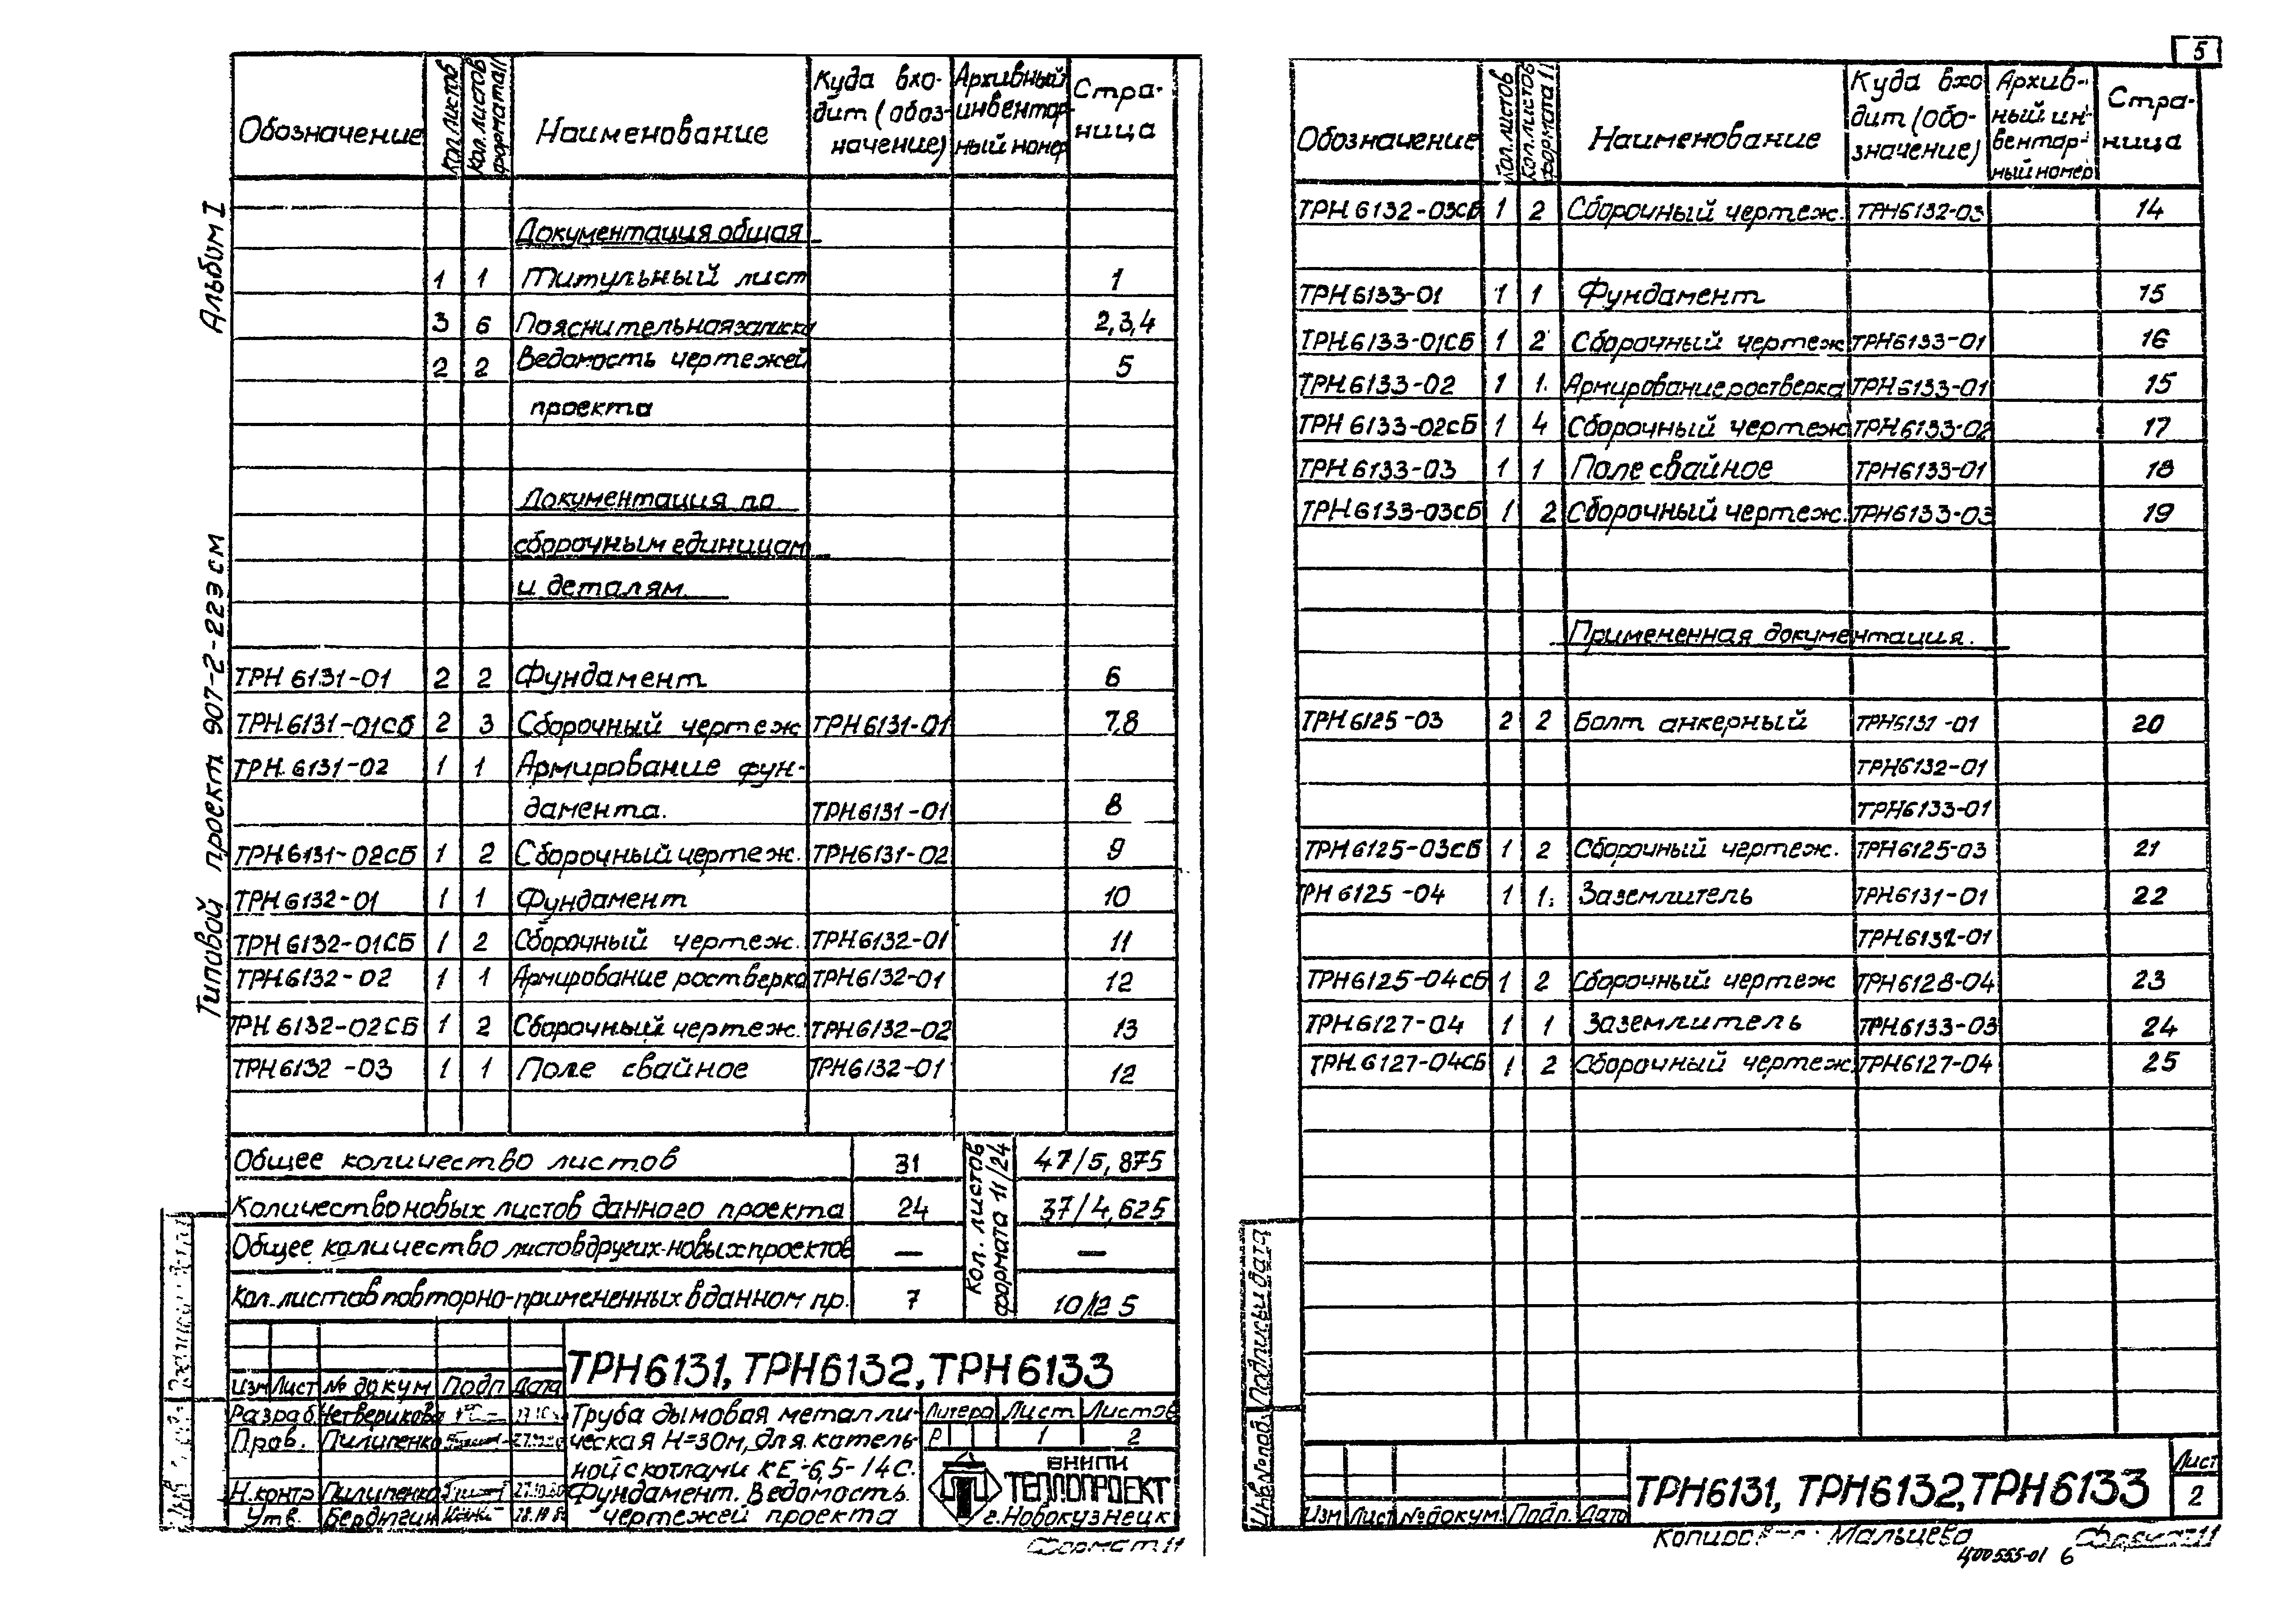 5
Альбом I
Типовой проект 907-2-223 см
Обозначение Кол. листов Кол. листов формата 11 Наименование Куда вхо-дит (обоз-начение) Архивный инвентар-ный номер Стра-ница
Документация общая
1 1 Титульный лист 1
3 6 Пояснительная записка 2,3,4
2 2 Ведомость чертежей 5
проекта
Документация по
сборочным единицам
и деталям.
ТРН 6131-01 2 2 Фундамент 6
ТРН 6131-01СБ 2 3 Сборочный чертеж ТРН 6131-01 7,8
ТРН 6131-02 1 1 Армирование фун-
дамента. ТРН 6131-01 8
ТРН 6131-02СБ 1 2 Сборочный чертеж. ТРН 6131-02 9
ТРН 6132-01 1 1 Фундамент 10
ТРН 6132-01СБ 1 2 Сборочный чертеж. ТРН 6132-01 11
ТРН 6132-02 1 1 Армирование ростверка ТРН 6132-01 12
ТРН 6132-02СБ 1 2 Сборочный чертеж. ТРН 6132-02 13
ТРН 6132-03 1 1 Поле свайное ТРН 6132-01 12
Общее количество листов 31 Кол. листов формата 11/24 47/5,875
Количество новых листов данного проекта 24 37/4,625
Общее количество листов других новых проектов — —
Кол. листов повторно-примененных в данном пр. 7 10/125
ТРН 6131, ТРН 6132, ТРН 6133
Изм Лист № докум Подп Дата
Разраб Четверикова
Пров. Пилипенко
Н.контр Пилипенко
Утв. Бердюгин
Труба дымовая металли-
ческая Н=30м, для котель-
ной с котлами КЕ-6,5-14С.
Фундамент. Ведомость
чертежей проекта
Литера Лист Листов
Р 1 2
ВНИПИ
ТЕПЛОПРОЕКТ
г. Новокузнецк
Формат 11
Обозначение Кол. листов Кол. листов формата 11 Наименование Куда вхо-дит (обо-значение) Архив-ный ин-вентар-ный номер Стра-ница
ТРН 6132-03СБ 1 2 Сборочный чертеж. ТРН 6132-03 14
ТРН 6133-01 1 1 Фундамент 15
ТРН 6133-01СБ 1 2 Сборочный чертеж ТРН 6133-01 16
ТРН 6133-02 1 1 Армирование ростверка ТРН 6133-01 15
ТРН 6133-02СБ 1 4 Сборочный чертеж ТРН 6133-02 17
ТРН 6133-03 1 1 Поле свайное ТРН 6133-01 18
ТРН 6133-03СБ 1 2 Сборочный чертеж. ТРН 6133-03 19
Примененная документация.
ТРН 6125-03 2 2 Болт анкерный ТРН 6131-01 20
ТРН 6132-01
ТРН 6133-01
ТРН 6125-03СБ 1 2 Сборочный чертеж. ТРН 6125-03 21
ТРН 6125-04 1 1 Заземлитель ТРН 6131-01 22
ТРН 6132-01
ТРН 6125-04СБ 1 2 Сборочный чертеж ТРН 6128-04 23
ТРН 6127-04 1 1 Заземлитель ТРН 6133-03 24
ТРН 6127-04СБ 1 2 Сборочный чертеж ТРН 6127-04 25
Инв № под. Подпись и дата
Изм Лист № докум. Подп. Дата
ТРН 6131, ТРН 6132, ТРН 6133
Лист
2
Мальцева Формат 11
Ц00555-01 6